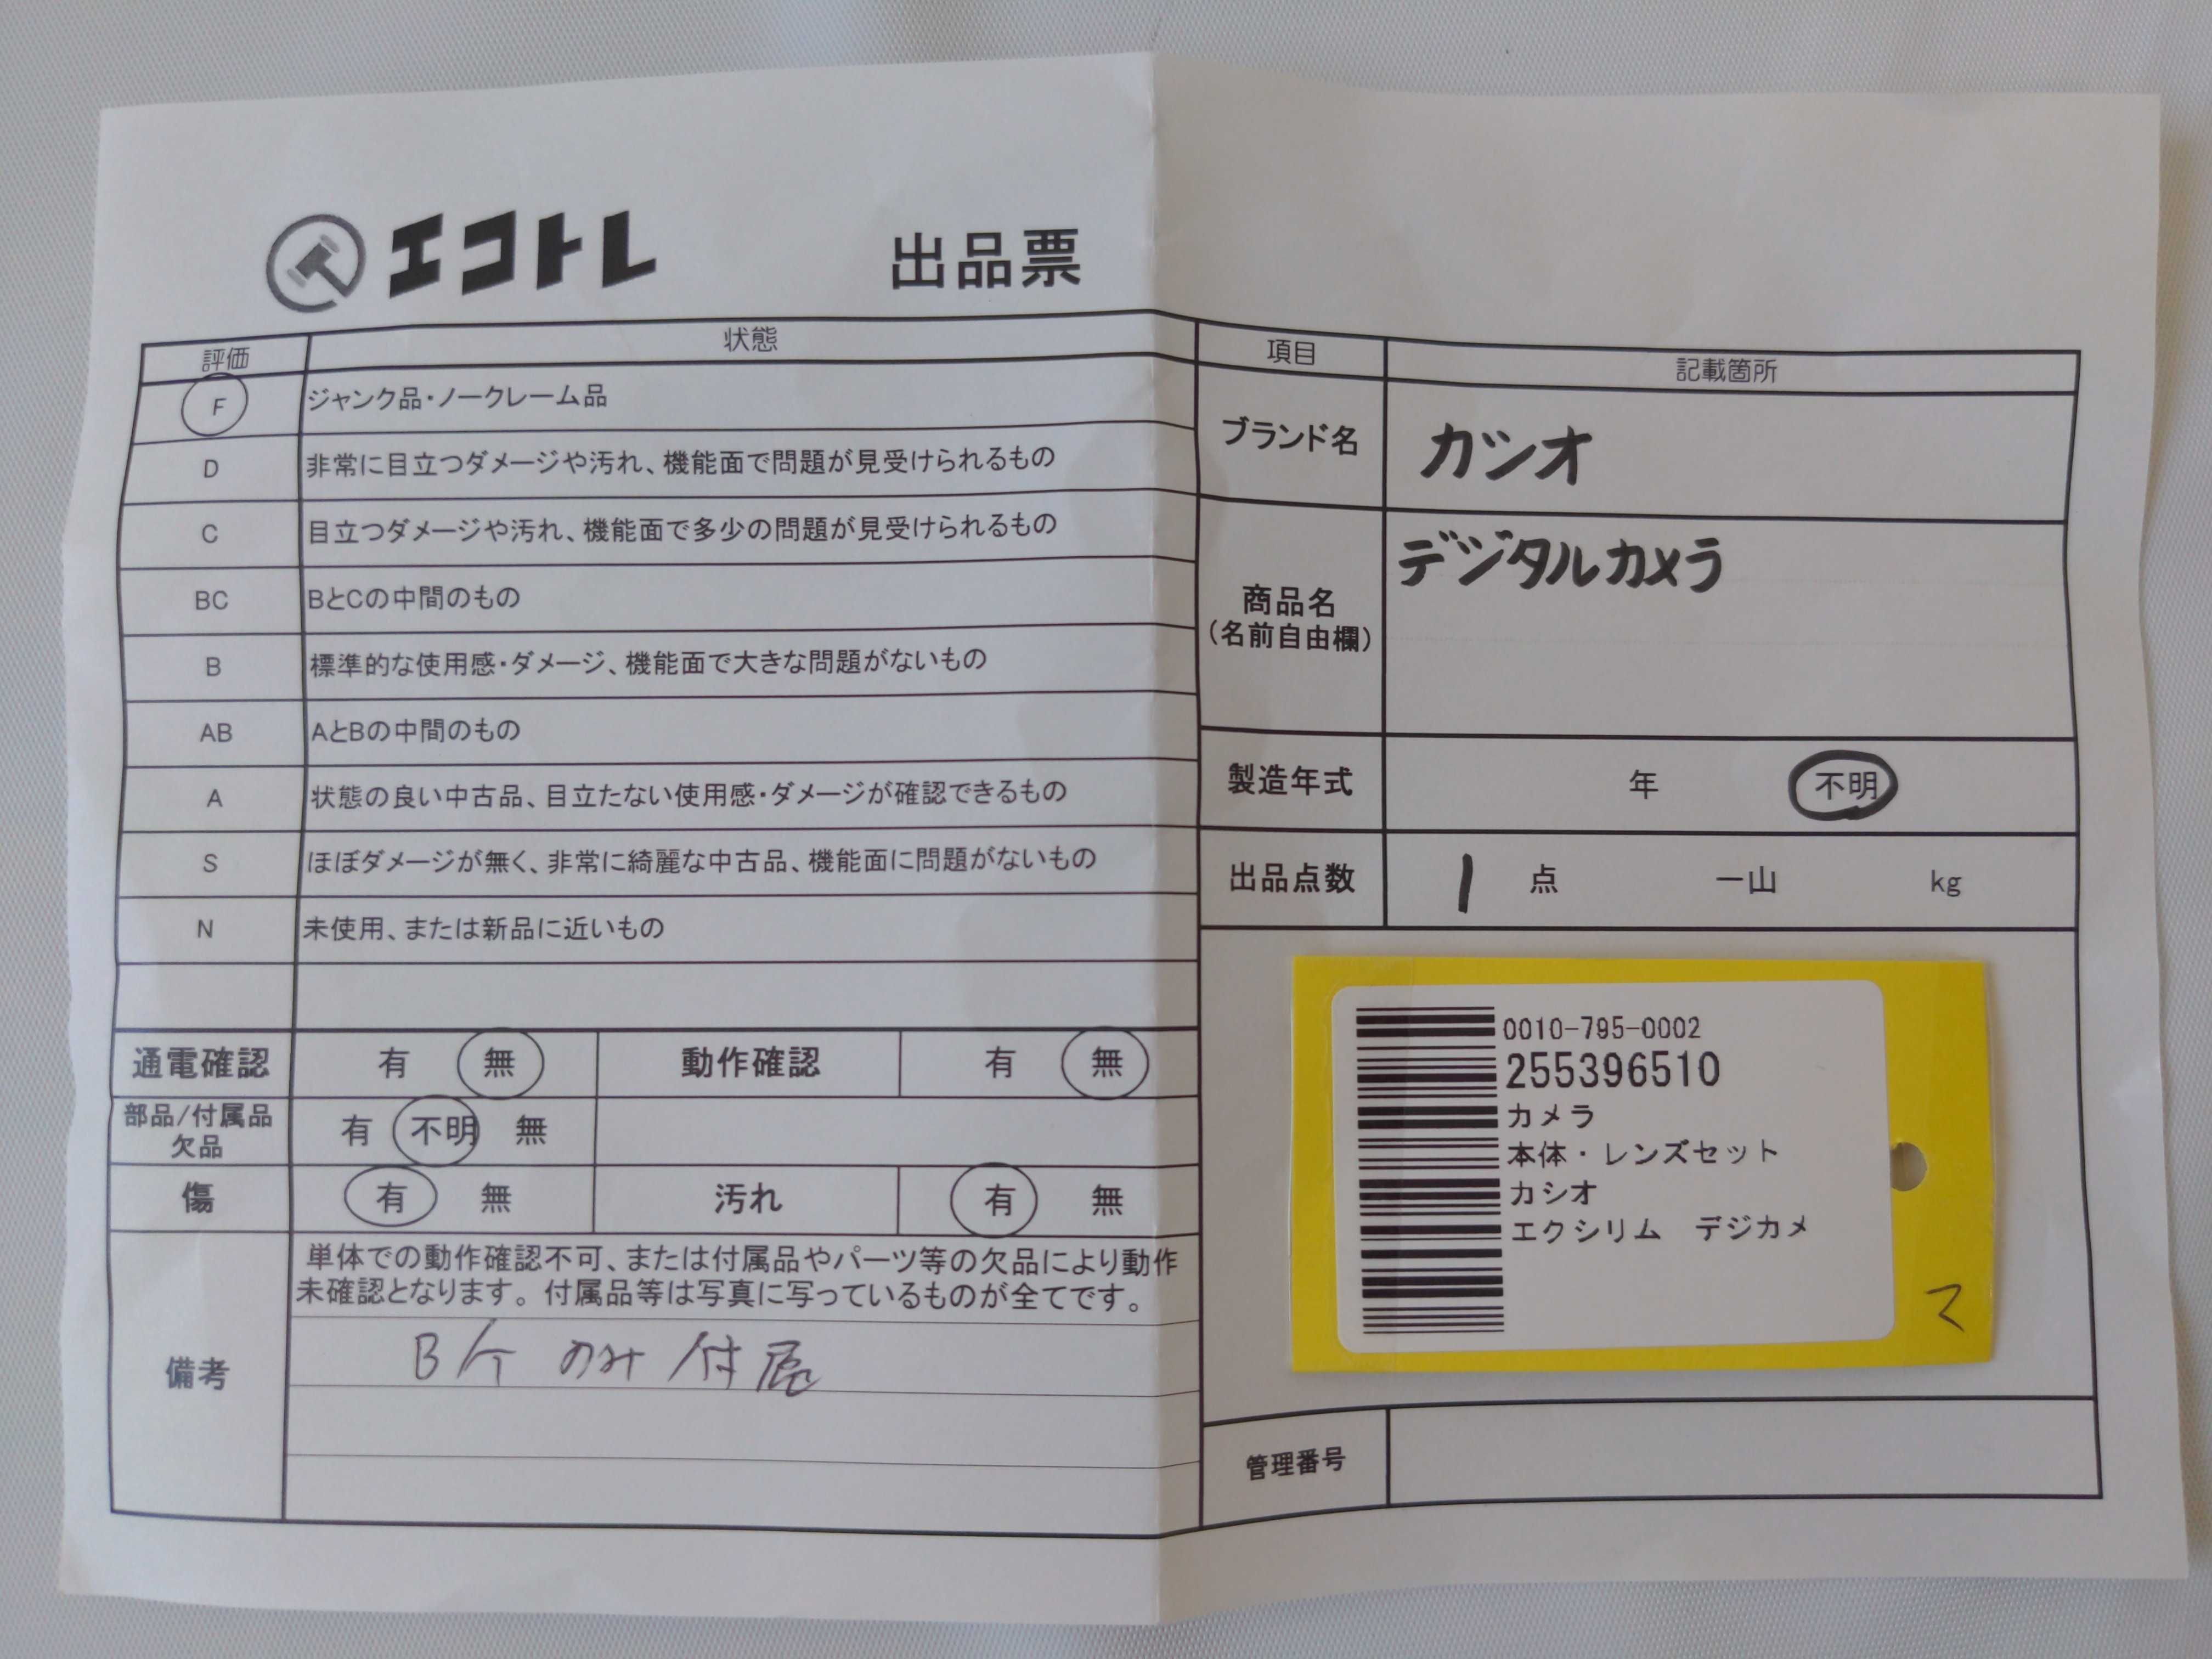 エコトレ 出品票
評価 状態
F ジャンク品・ノークレーム品
D 非常に目立つダメージや汚れ、機能面で問題が見受けられるもの
C 目立つダメージや汚れ、機能面で多少の問題が見受けられるもの
BC BとCの中間のもの
B 標準的な使用感・ダメージ、機能面で大きな問題がないもの
AB AとBの中間のもの
A 状態の良い中古品、目立たない使用感・ダメージが確認できるもの
S ほぼダメージが無く、非常に綺麗な中古品、機能面に問題がないもの
N 未使用、または新品に近いもの
通電確認 有 無 動作確認 有 無
部品/付属品
欠品 有 不明 無
傷 有 無 汚れ 有 無
備考
単体での動作確認不可、または付属品やパーツ等の欠品により動作
未確認となります。付属品等は写真に写っているものが全てです。
B/ケ のみ 付属
項目 記載箇所
ブランド名 カシオ
商品名
(名前自由欄)
デジタルカメラ
製造年式 年 不明
出品点数 1 点 一山 kg
0010-795-0002
255396510
カメラ
本体・レンズセット
カシオ
エクシリム デジカメ
マ
管理番号